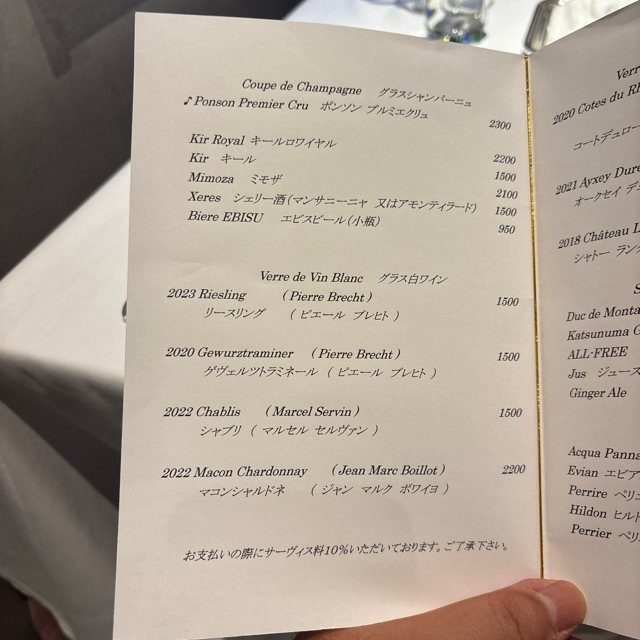 Coupe de Champagne グラスシャンパーニュ
♪Ponson Premier Cru ポンソン プルミエクリュ 2300
Kir Royal キールロワイヤル 2200
Kir キール 1500
Mimoza ミモザ 2100
Xeres シェリー酒(マンサニーニャ 又はアモンティラード) 1500
Biere EBISU エビスビール(小瓶) 950
Verre de Vin Blanc グラス白ワイン
2023 Riesling (Pierre Brecht) 1500
リースリング ( ピエール ブレヒト )
2020 Gewurztraminer (Pierre Brecht) 1500
ゲヴェルツトラミネール ( ピエール ブレヒト )
2022 Chablis (Marcel Servin) 1500
シャブリ ( マルセル セルヴァン )
2022 Macon Chardonnay (Jean Marc Boillot) 2200
マコンシャルドネ ( ジャン マルク ボワイヨ )
お支払いの際にサーヴィス料10%いただいております。ご了承下さい。
Verre
2020 Cotes du Rh
コートデュロー
2021 Ayxey Dure
オークセイ デュ
2018 Château L
シャトー ラン
S
Duc de Monta
Katsunuma
ALL-FREE
Jus ジュース
Ginger Ale
Acqua Panna
Evian エビア
Perrire ペリエ
Hildon ヒルド
Perrier ペリ